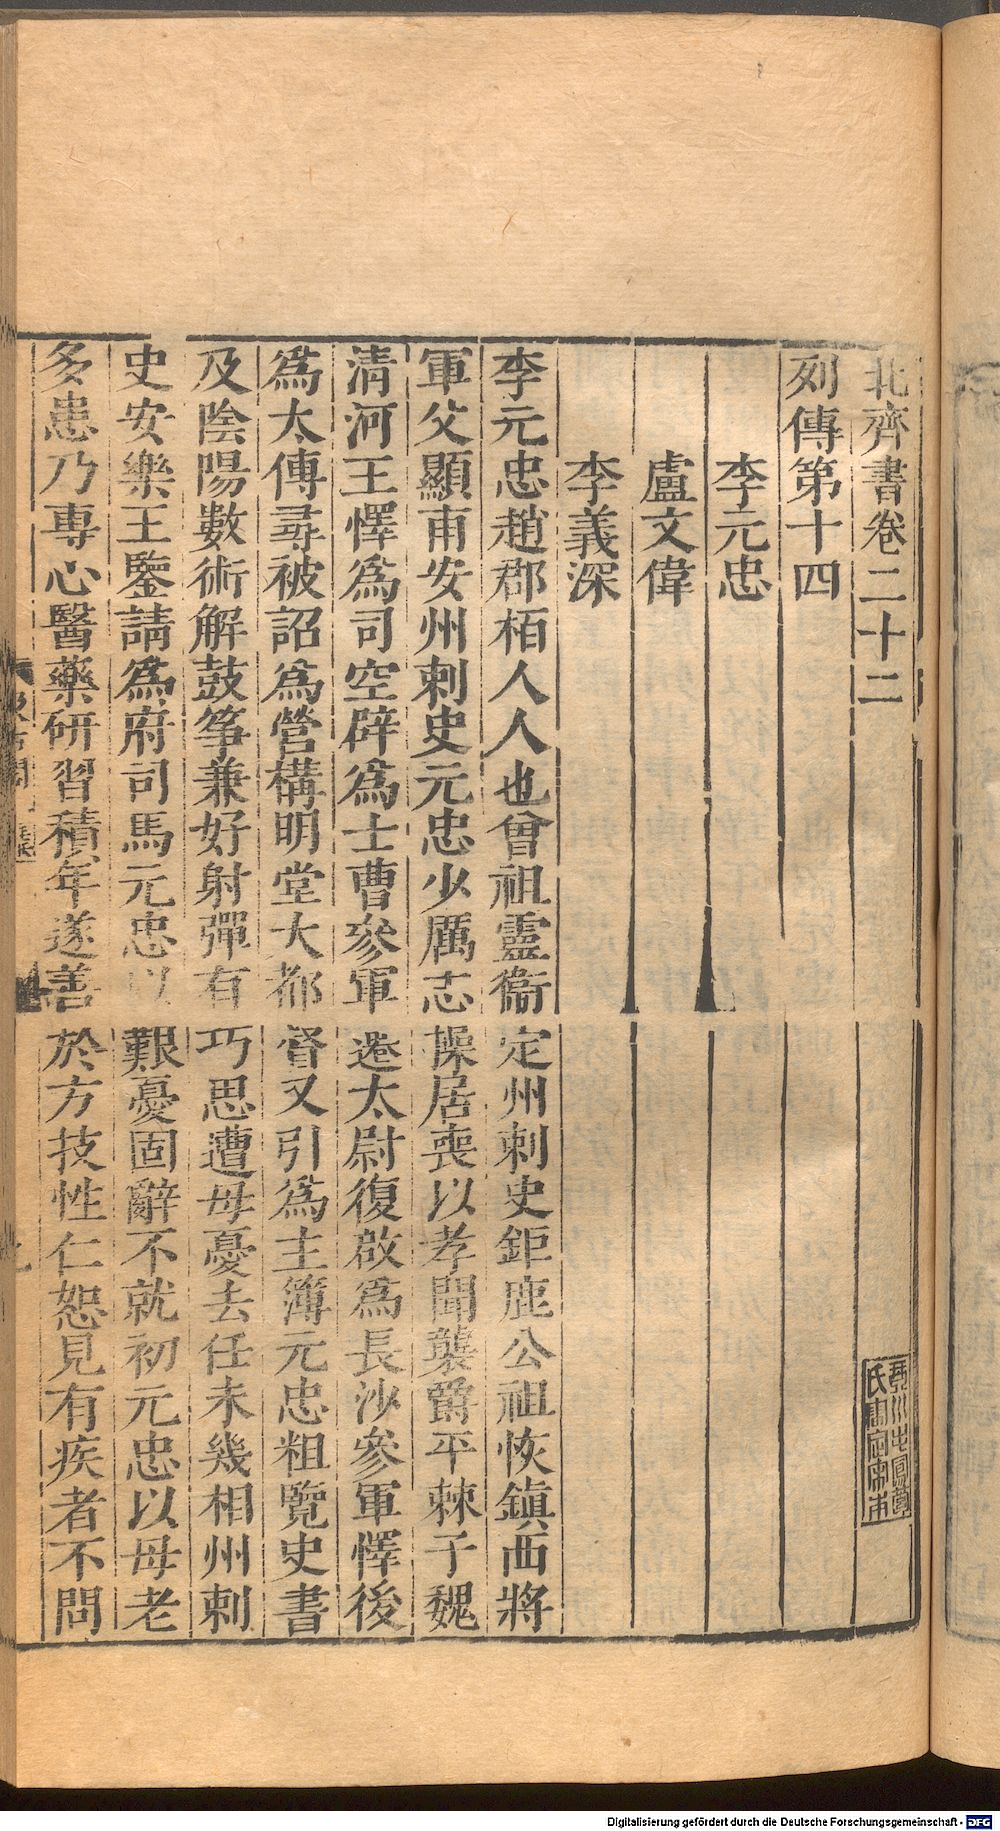 北齊書卷二十二
列傳第十四
李元忠
盧文偉
李義深
李元忠趙郡栢人人也曾祖靈衞定州刺史鉅鹿公祖恢鎭西將
軍父顯甫安州刺史元忠少厲志操居喪以孝聞襲爵平棘子魏
淸河王懌爲司空辟爲士曹參軍遷太尉復啟爲長沙參軍懌後
爲太傅尋被詔爲營構明堂大都督又引爲主簿元忠粗覽史書
及陰陽數術解鼓筝兼好射彈有巧思遭母憂去任未幾相州刺
史安樂王鑒請爲府司馬元忠以艱憂固辭不就初元忠以母老
多患乃專心醫藥研習積年遂善於方技性仁恕見有疾者不問
Digitalisierung gefördert durch die Deutsche Forschungsgemeinschaft - DFG